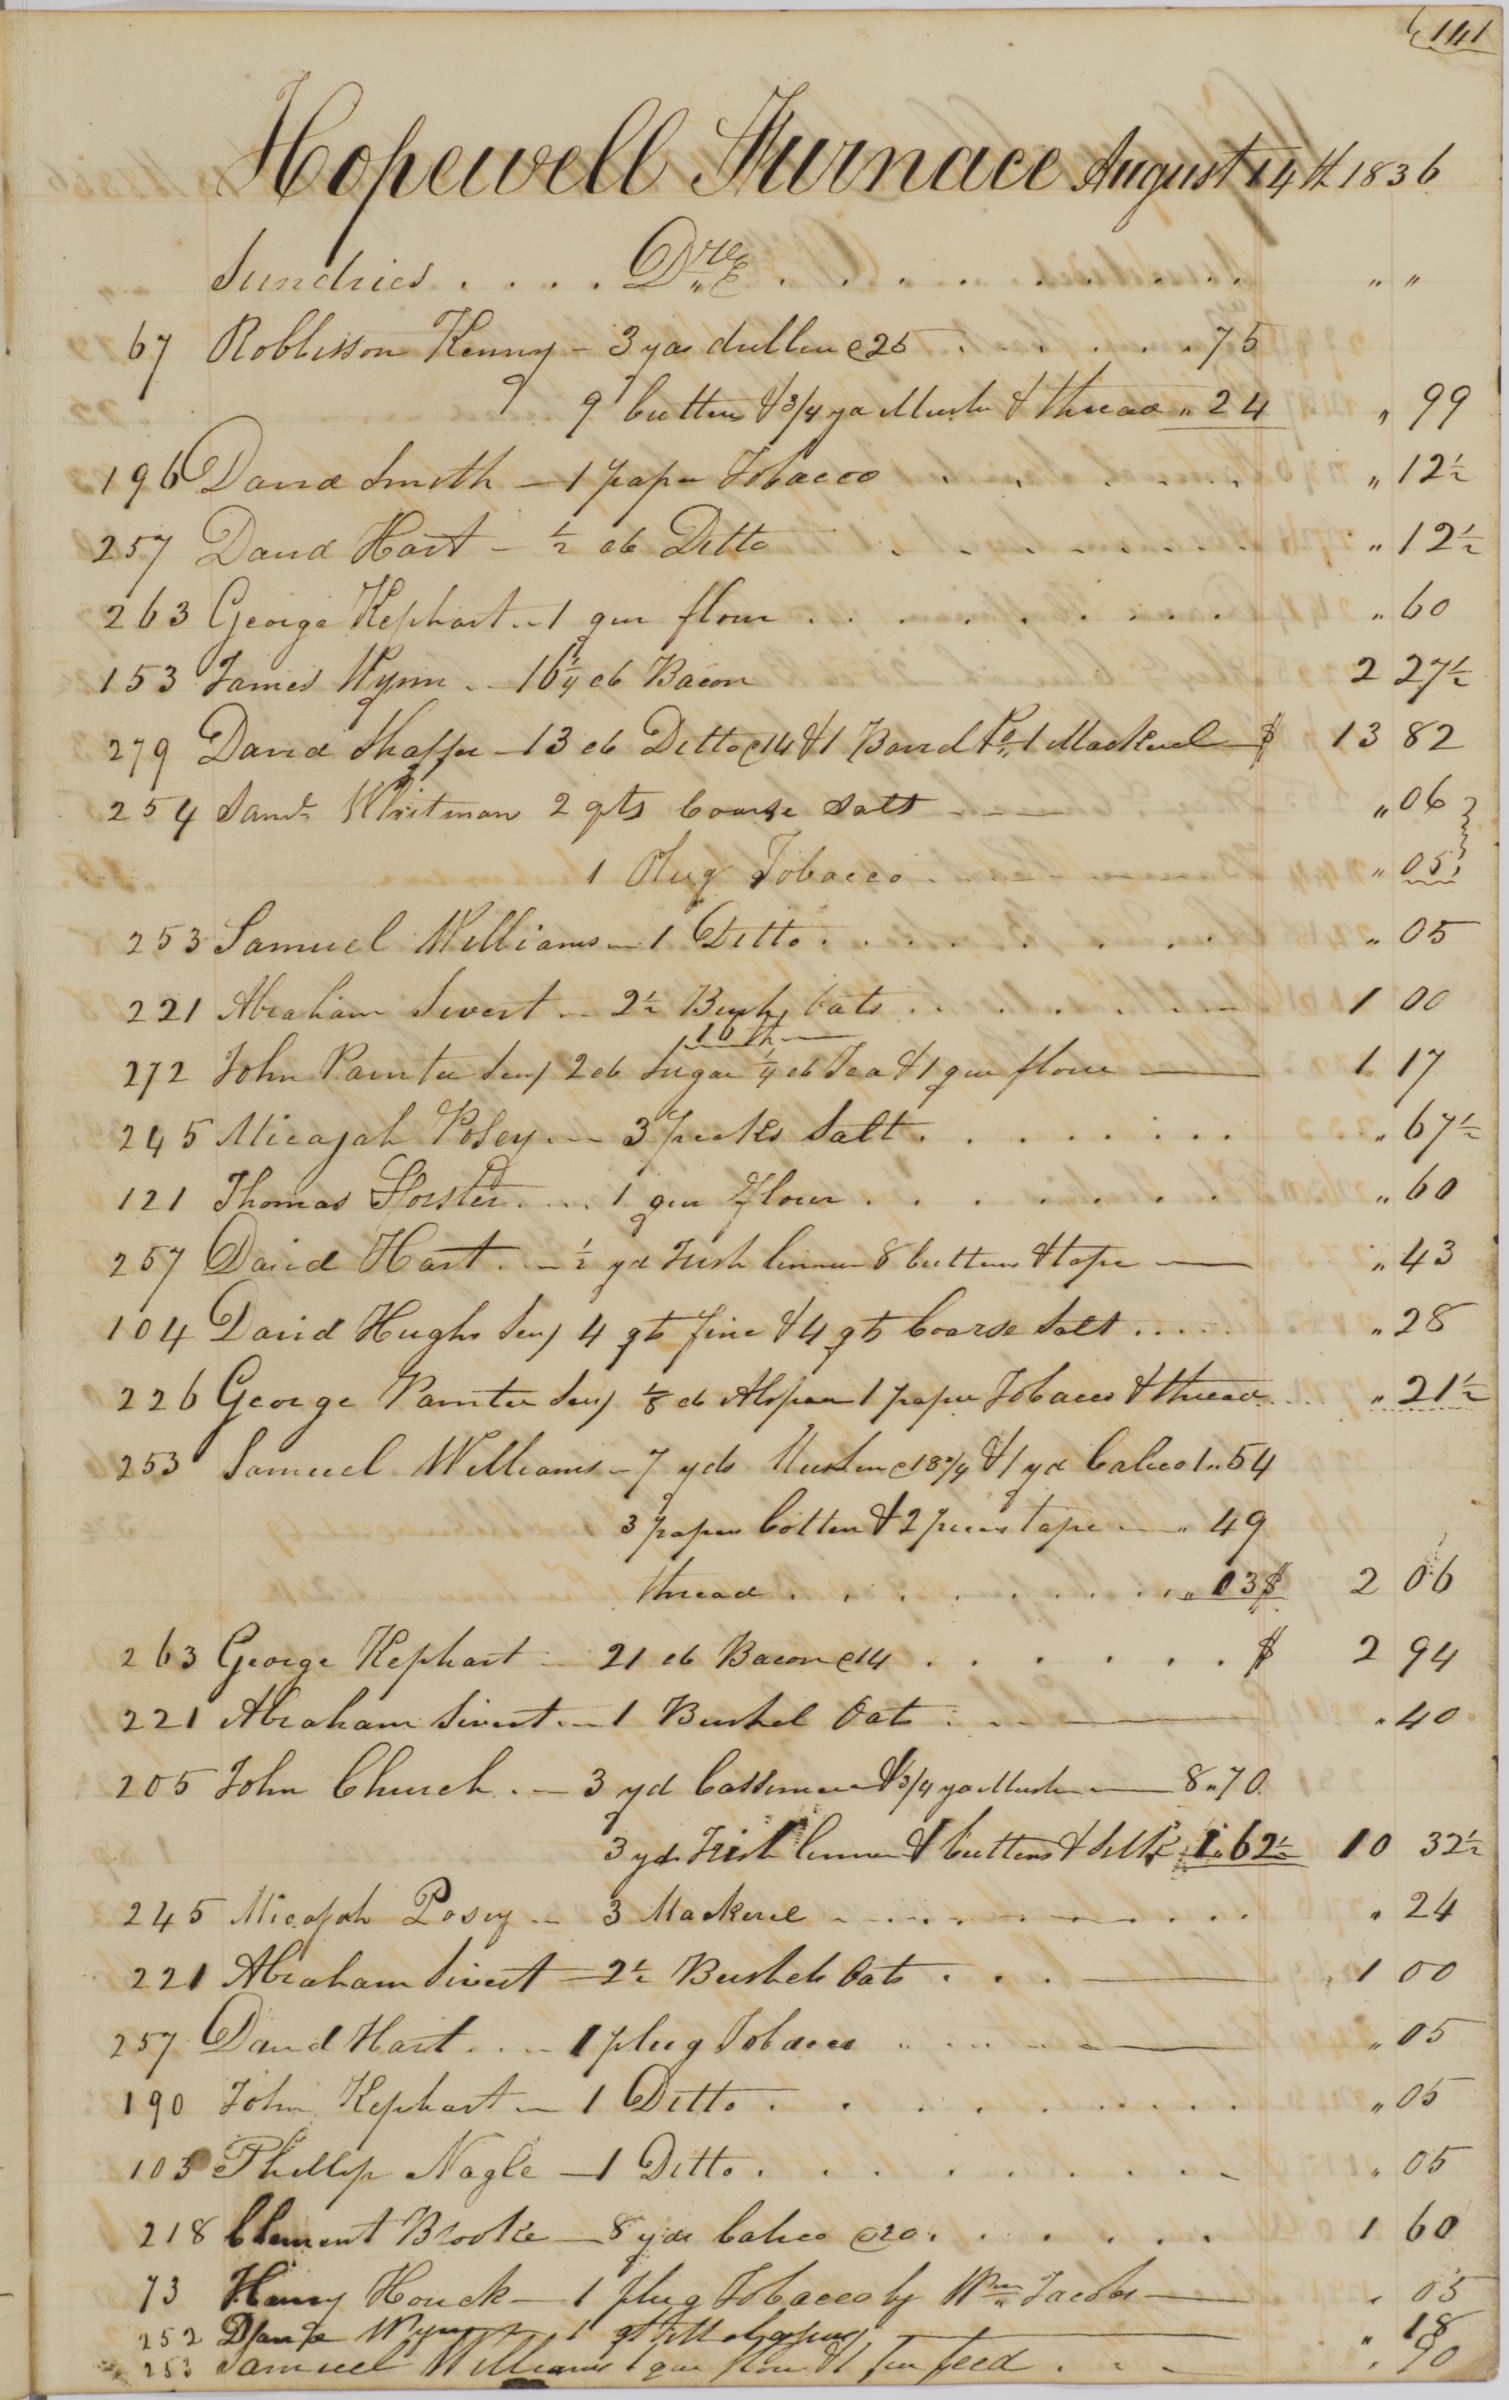 141
Hopewell Furnace August 14th 1836
Sundries . . . . Drs . . . . . . . . . . " "
67 Robbisson Kenny - 3 yds drilling @25 . . . . . . 75
9 buttons & 3/4 yd Muslin & thread " 24 " 99
196 David Smith - 1 paper Tobacco . . . . . " 12½
257 David Hart - ½ lb Ditto . . . . . . " 12½
263 George Kephart - 1 qur flour . . . . . . " 60
153 James Wynn - 16¼ lb Bacon 2 27½
279 David Shaffer - 13 lb Ditto @14 & 1 Barrel No 1 Mackerel $ 13 82
254 Saml Whitman 2 qts Coarse Salt " 06
1 Plug Tobacco " 05
253 Samuel Williams - 1 Ditto . . . . . . " 05
221 Abraham Sivert - 2½ Bush Oats . . . . . . 1 00
16th
272 John Painter Senr 2 lb Sugar ¼ lb Tea & 1 qur flour 1 17
245 Micajah Posey - 3 pecks Salt . . . . . . . " 67½
121 Thomas Forster . . . 1 qur Flour . . . . . . " 60
257 David Hart - ½ yd Irish linnen 8 buttons & tape " 43
104 David Hughs Senr 4 qts fine & 4 qts Coarse Salt . . . . " 28
226 George Painter Senr ⅛ lb 1 paper Tobacco & thread " 21½
253 Samuel Williams - 7 yds Muslin @18¾ & 1 yd Calico 1 " 54
3 papers Cotton & 2 pieces tape " 49
thread . . . . . . . . " 03 $ 2 06
263 George Kephart - 21 lb Bacon @14 . . . . . . $ 2 94
221 Abraham Sivert - 1 Bushel Oats " 40
205 John Church - 3 yd Cassimere & 3/4 yd Muslin 8 " 70
3 yds Irish linnen & buttons & silk 1 " 62½ 10 32½
245 Micajah Posey - 3 Mackerel . . . . . . " 24
221 Abraham Sivert - 2½ Bushels Oats . . . 1 00
257 David Hart . . . 1 plug Tobacco " 05
190 John Kephart - 1 Ditto . . . . . . . " 05
103 Phillip Nagle - 1 Ditto . . . . . . . " 05
218 Clement Brooke - 8 yds Calico @20 . . . . . . 1 60
73 Henry Houck - 1 plug Tobacco by Wm Jacobs " 05
252 Wynn 1 " 18
253 Samuel Williams 1 qur flour & 1 feed . . . " 90